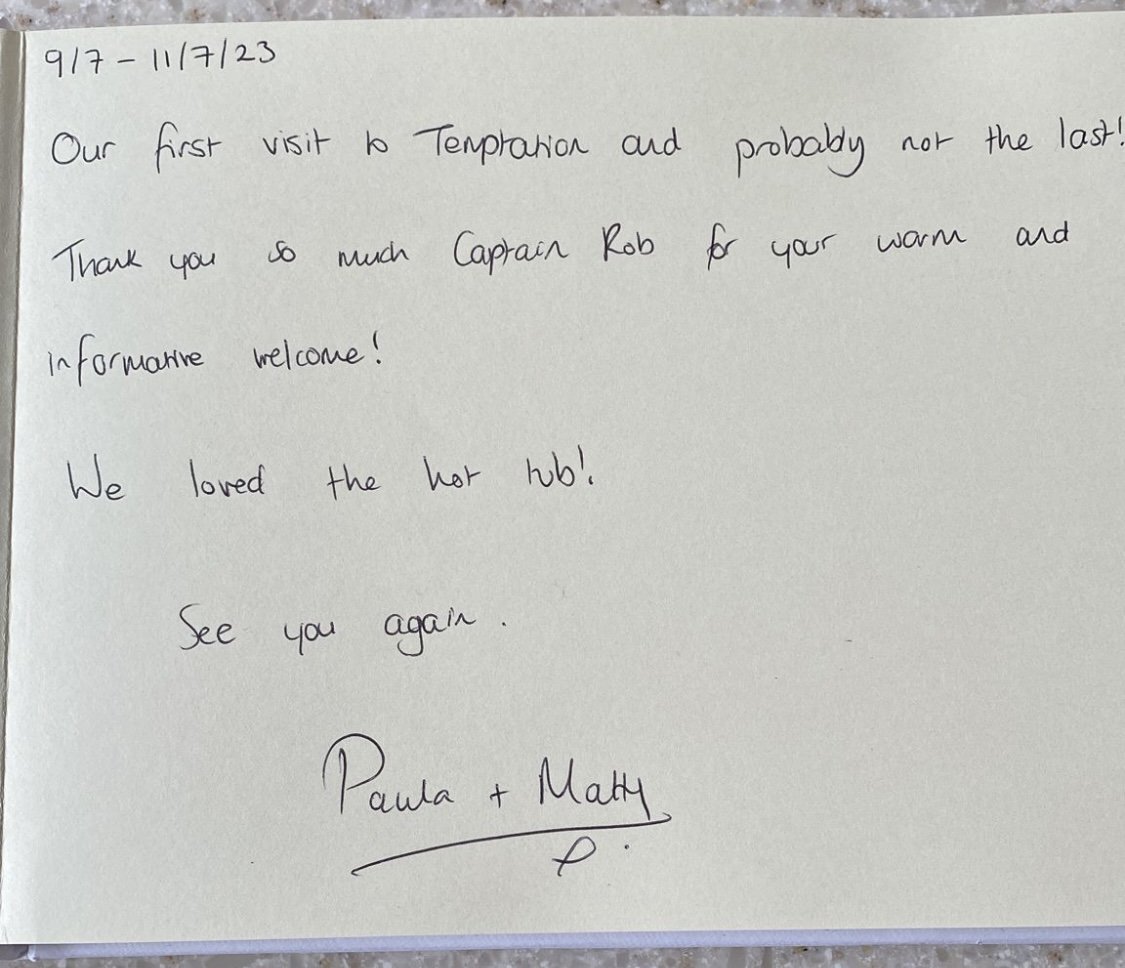 9/7 - 11/7/23
Our first visit to Temptation and probably not the last!
Thank you so much Captain Rob for your warm and
informative welcome!
We loved the hot tub!
See you again.
Paula + Matty